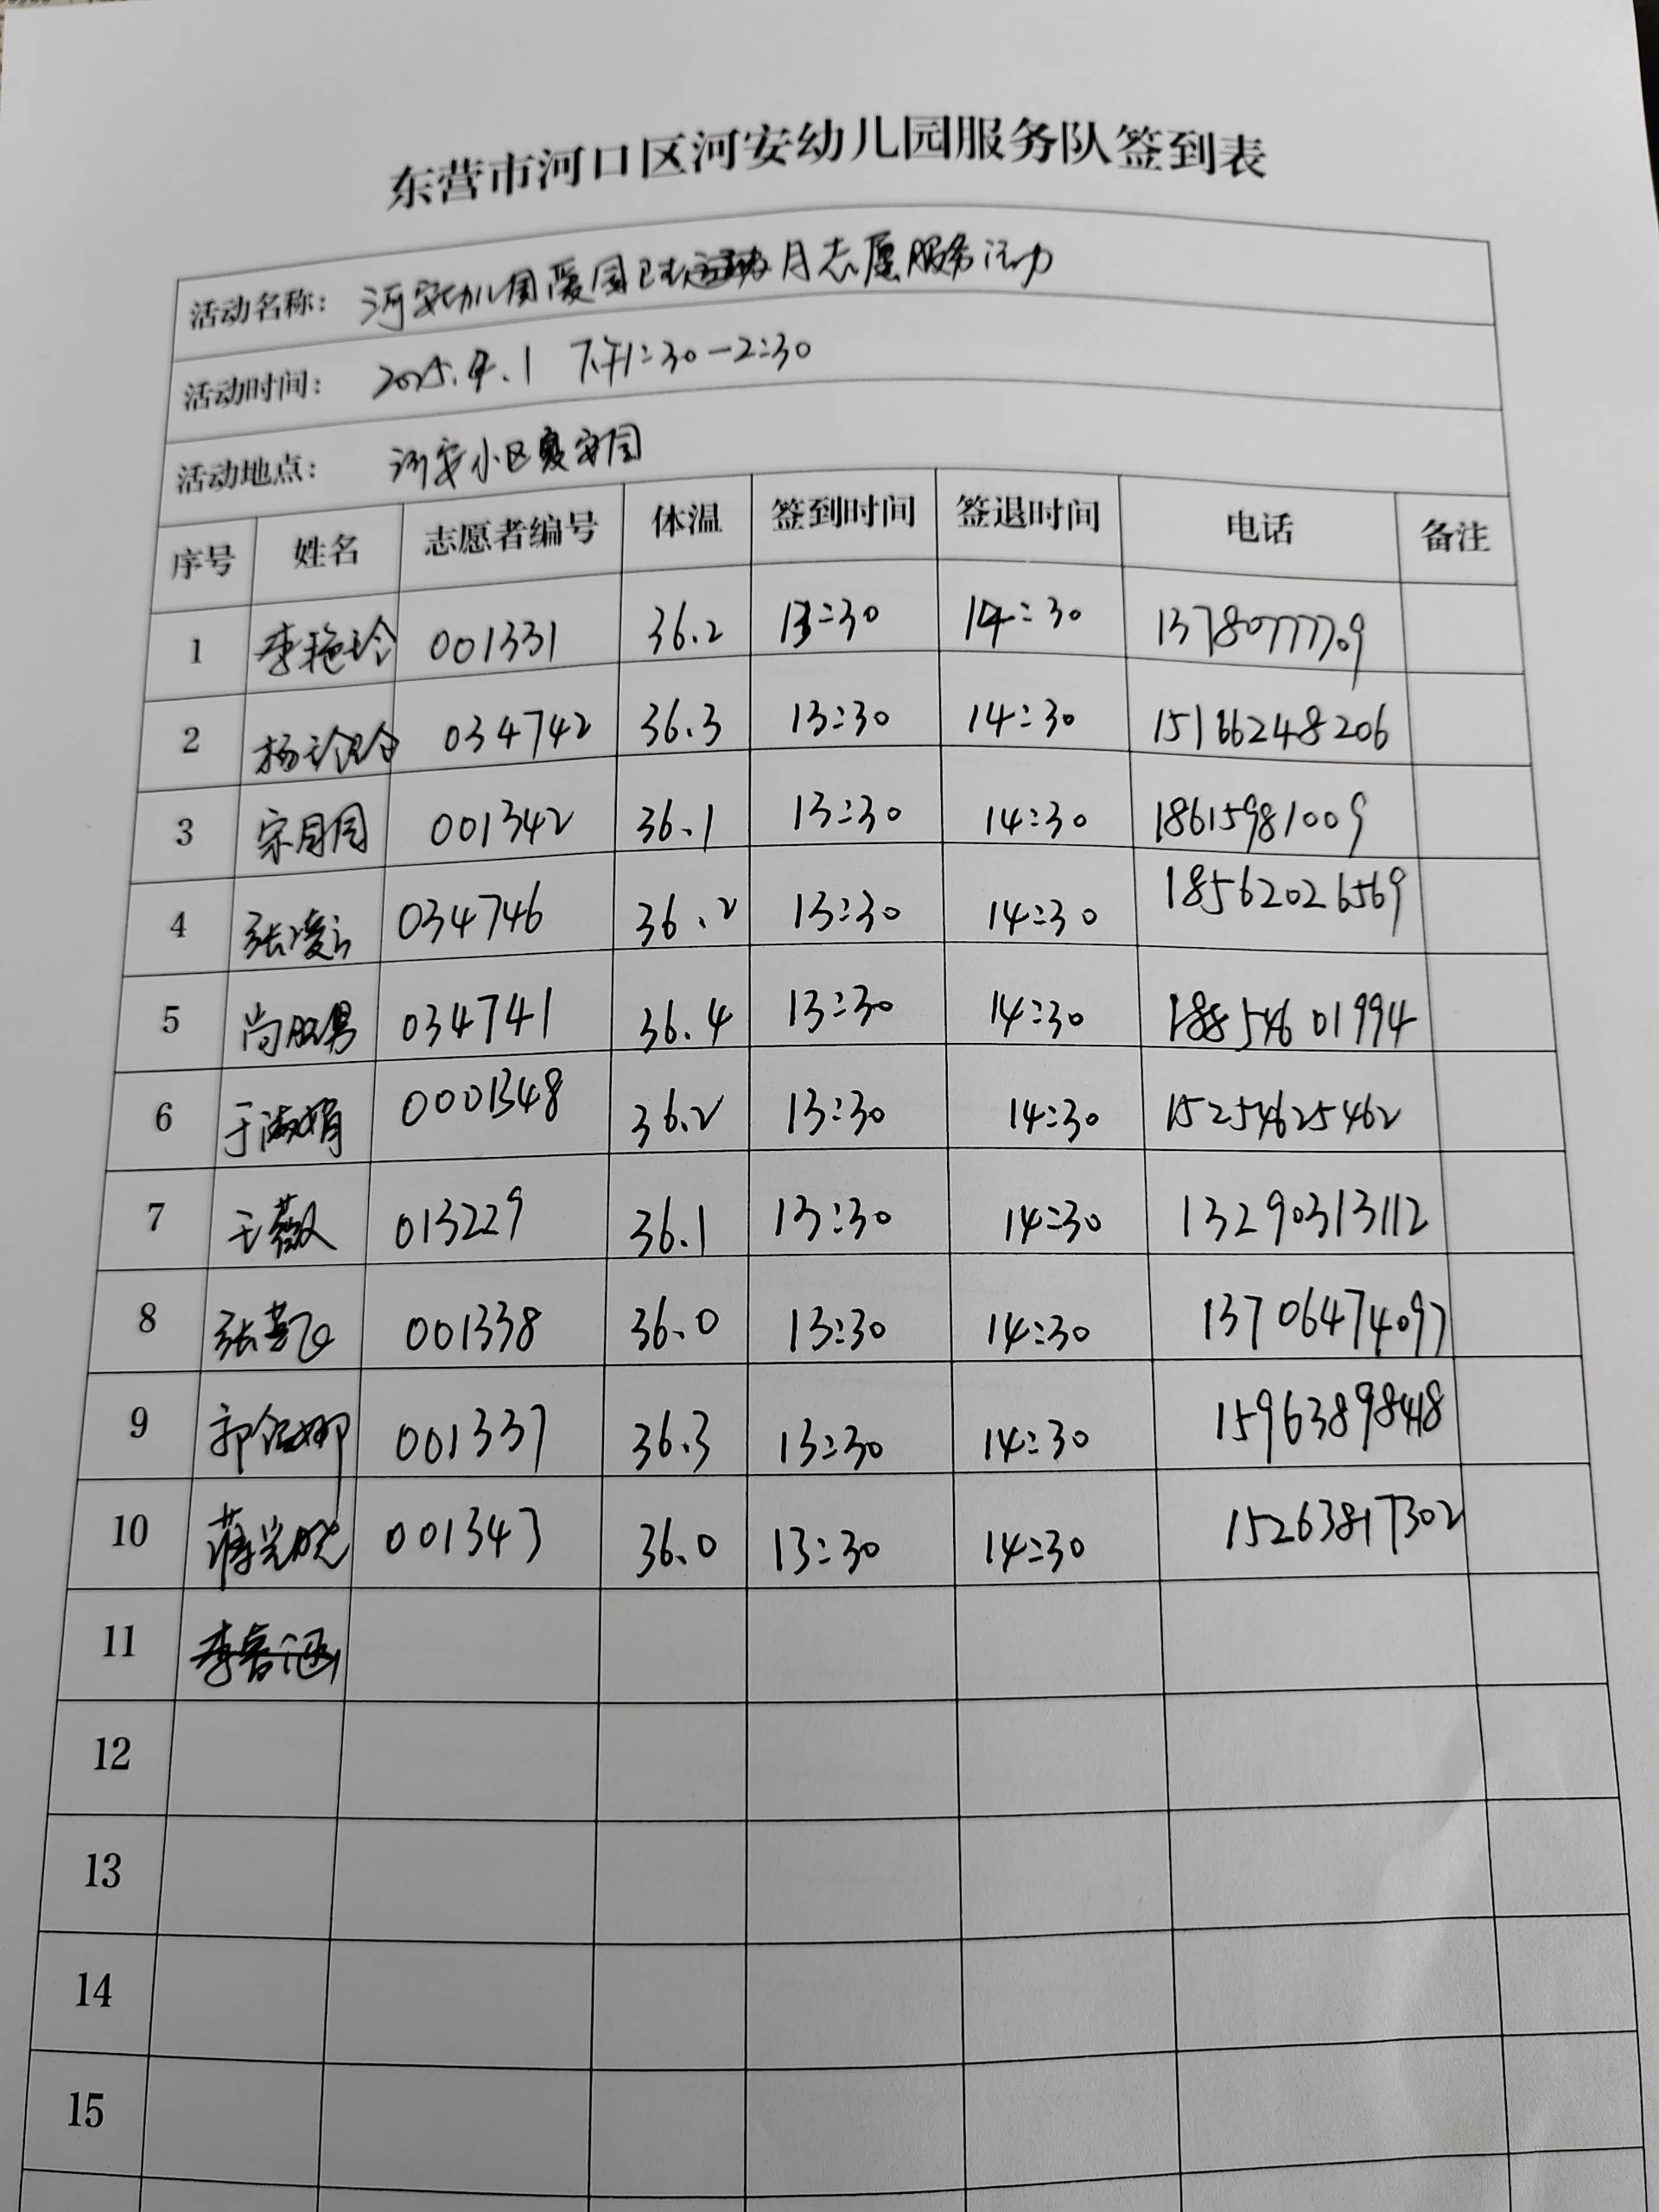 东营市河口区河安幼儿园服务队签到表
活动名称： 河安幼儿园爱国卫生运动月志愿服务活动
活动时间： 2025.4.1 下午1:30-2:30
活动地点： 河安小区 安园
序号 姓名 志愿者编号 体温 签到时间 签退时间 电话 备注
1 李艳玲 001331 36.2 13:30 14:30 13780777709
2 杨玲玲 034742 36.3 13:30 14:30 15166248206
3 宗月圆 001342 36.1 13:30 14:30 18615981009
4 034746 36.2 13:30 14:30 18562026569
5 034741 36.4 13:30 14:30 18854601994
6 于淑娟 0001348 36.2 13:30 14:30 15254625462
7 王薇 013229 36.1 13:30 14:30 13290313112
8 001338 36.0 13:30 14:30 13706474097
9 001337 36.3 13:30 14:30 15963898418
10 001343 36.0 13:30 14:30 15263817302
11
12
13
14
15